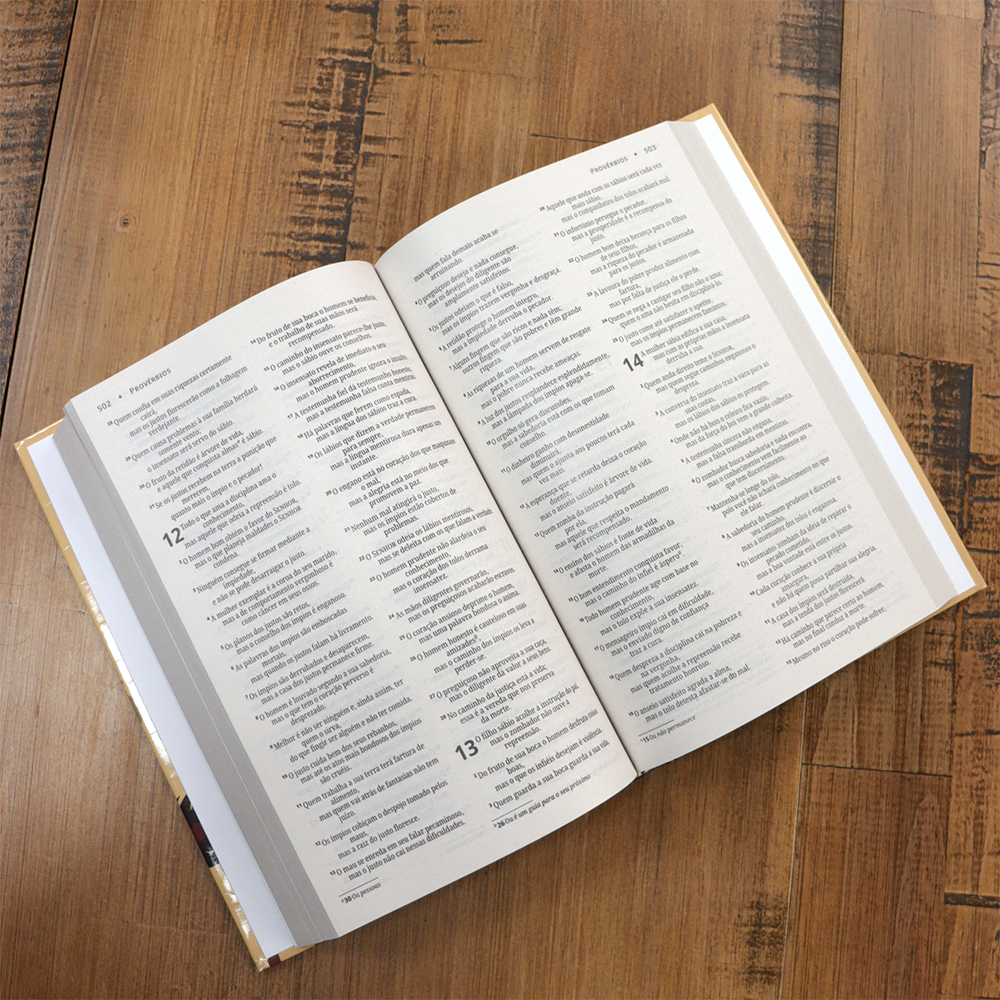 502 • PROVÉRBIOS
²⁸ Quem confia em suas riquezas certamente
cairá,
mas os justos florescerão como a folhagem
verdejante.
²⁹ Quem causa problemas à sua família herdará
somente vento;
o insensato será servo do sábio.
³⁰ O fruto da retidão é árvore de vida,
e aquele que conquista almasᵃ é sábio.
³¹ Se os justos recebem na terra a punição que
merecem,
quanto mais o ímpio e o pecador!
12 Todo o que ama a disciplina ama o
conhecimento,
mas aquele que odeia a repreensão é tolo.
² O homem bom obtém o favor do SENHOR,
mas o que planeja maldades o SENHOR
condena.
³ Ninguém consegue se firmar mediante a
impiedade,
e não se pode desarraigar o justo.
⁴ A mulher exemplar é a coroa do seu marido,
mas a de comportamento vergonhoso é
como câncer em seus ossos.
⁵ Os planos dos justos são retos,
mas o conselho dos ímpios é enganoso.
⁶ As palavras dos ímpios são emboscadas
mortais,
mas quando os justos falam há livramento.
⁷ Os ímpios são derrubados e desaparecem,
mas a casa dos justos permanece firme.
⁸ O homem é louvado segundo a sua sabedoria,
mas o que tem o coração perverso é
desprezado.
⁹ Melhor é não ser ninguém e, ainda assim, ter
quem o sirva,
do que fingir ser alguém e não ter comida.
¹⁰ O justo cuida bem dos seus rebanhos,
mas até os atos mais bondosos dos ímpios
são cruéis.
¹¹ Quem trabalha a sua terra terá fartura de
alimento,
mas quem vai atrás de fantasias não tem
juízo.
¹² Os ímpios cobiçam o despojo tomado pelos
maus,
mas a raiz do justo floresce.
¹³ O mau se enreda em seu falar pecaminoso,
mas o justo não cai nessas dificuldades.
ᵃ 30 Ou pessoas
¹⁴ Do fruto de sua boca o homem se beneficia,
e o trabalho de suas mãos será
recompensado.
¹⁵ O caminho do insensato parece-lhe justo,
mas o sábio ouve os conselhos.
¹⁶ O insensato revela de imediato o seu
aborrecimento,
mas o homem prudente ignora o insulto.
¹⁷ A testemunha fiel dá testemunho honesto,
mas a testemunha falsa conta mentiras.
¹⁸ Há palavras que ferem como espada,
mas a língua dos sábios traz a cura.
¹⁹ Os lábios que dizem a verdade permanecem
para sempre,
mas a língua mentirosa dura apenas um
instante.
²⁰ O engano está no coração dos que maquinam
o mal,
mas a alegria está no meio dos que
promovem a paz.
²¹ Nenhum mal atingirá o justo,
mas os ímpios estão cobertos de
problemas.
²² O SENHOR odeia os lábios mentirosos,
mas se deleita com os que falam a verdade.
²³ O homem prudente não alardeia o seu
conhecimento,
mas o coração dos tolos derrama
insensatez.
²⁴ As mãos diligentes governarão,
mas os preguiçosos acabarão escravos.
²⁵ O coração ansioso deprime o homem,
mas uma palavra bondosa o anima.
²⁶ O homem honesto é cauteloso em suas
amizadesᵇ,
mas o caminho dos ímpios os leva a
perder-se.
²⁷ O preguiçoso não aproveita a sua caça,
mas o diligente dá valor a seus bens
²⁸ No caminho da justiça está a vida;
essa é a vereda que nos preserva
da morte.
13 O filho sábio acolhe a instrução do pai,
mas o zombador não ouve a
repreensão.
² Do fruto de sua boca o homem desfruta coisas
boas,
mas o que os infiéis desejam é violência
³ Quem guarda a sua boca guarda a sua vida
ᵇ 26 Ou é um guia para o seu próximo
PROVÉRBIOS • 503
mas quem fala demais acaba se
arruinando.
⁴ O preguiçoso deseja e nada consegue,
mas os desejos do diligente são
amplamente satisfeitos.
⁵ Os justos odeiam o que é falso,
mas os ímpios trazem vergonha e desgraça.
⁶ A retidão protege o homem íntegro,
mas a impiedade derruba o pecador.
⁷ Alguns fingem que são ricos e nada têm;
outros fingem que são pobres e têm grande
riqueza.
⁸ As riquezas de um homem servem de resgate
para a sua vida,
mas o pobre nunca recebe ameaças.
⁹ A luz dos justos resplandece esplendidamente,
mas a lâmpada dos ímpios apaga-se.
¹⁰ O orgulho só gera discussões,
mas a sabedoria está com os que tomam
conselho.
¹¹ O dinheiro ganho com desonestidade
diminuirá,
mas quem o ajunta aos poucos terá cada
vez mais.
¹² A esperança que se retarda deixa o coração
doente,
mas o anseio satisfeito é árvore de vida.
¹³ Quem zomba da instrução pagará
por ela,
mas aquele que respeita o mandamento
será recompensado.
¹⁴ O ensino dos sábios é fonte de vida
e afasta o homem das armadilhas da
morte.
¹⁵ O bom entendimento conquista favor,
mas o caminho do infiel é ásperoᵃ.
¹⁶ Todo homem prudente age com base no
conhecimento,
mas o tolo expõe a sua insensatez.
¹⁷ O mensageiro ímpio cai em dificuldade,
mas o enviado digno de confiança
traz a cura.
¹⁸ Quem despreza a disciplina cai na pobreza e
na vergonha,
mas quem acolhe a repreensão recebe
tratamento honroso.
¹⁹ O anseio satisfeito agrada a alma,
mas o tolo detesta afastar-se do mal.
ᵃ 15 Ou não permanece
²⁰ Aquele que anda com os sábios será cada vez
mais sábio,
mas o companheiro dos tolos acabará mal.
²¹ O infortúnio persegue o pecador,
mas a prosperidade é a recompensa do
justo.
²² O homem bom deixa herança para os filhos
de seus filhos,
mas a riqueza do pecador é armazenada
para os justos.
²³ A lavoura do pobre produz alimento com
fartura,
mas por falta de justiça ele o perde.
²⁴ Quem se nega a castigar seu filho não o ama;
quem o ama não hesita em discipliná-lo.
²⁵ O justo come até satisfazer o apetite,
mas os ímpios permanecem famintos.
14 A mulher sábia edifica a sua casa,
mas com as próprias mãos a insensata
derruba a sua.
² Quem anda direito teme o SENHOR,
mas quem segue caminhos enganosos o
despreza.
³ A conversa do insensato traz a vara para as
suas costas,
mas os lábios dos sábios os protegem.
⁴ Onde não há bois o celeiro fica vazio,
mas da força do boi vem a grande colheita.
⁵ A testemunha sincera não engana,
mas a falsa transborda em mentiras.
⁶ O zombador busca sabedoria e nada encontra,
mas o conhecimento vem facilmente ao
que tem discernimento.
⁷ Mantenha-se longe do tolo,
pois você não achará conhecimento no que
ele falar.
⁸ A sabedoria do homem prudente é discernir o
seu caminho,
mas a insensatez dos tolos é enganosa.
⁹ Os insensatos zombam da ideia de reparar o
pecado cometido,
mas a boa vontade está entre os justos.
¹⁰ Cada coração conhece a sua própria
amargura,
e não há quem possa partilhar sua alegria.
¹¹ A casa dos ímpios será destruída,
mas a tenda dos justos florescerá.
¹² Há caminho que parece certo ao homem,
mas no final conduz à morte.
¹³ Mesmo no riso o coração pode sofrer,